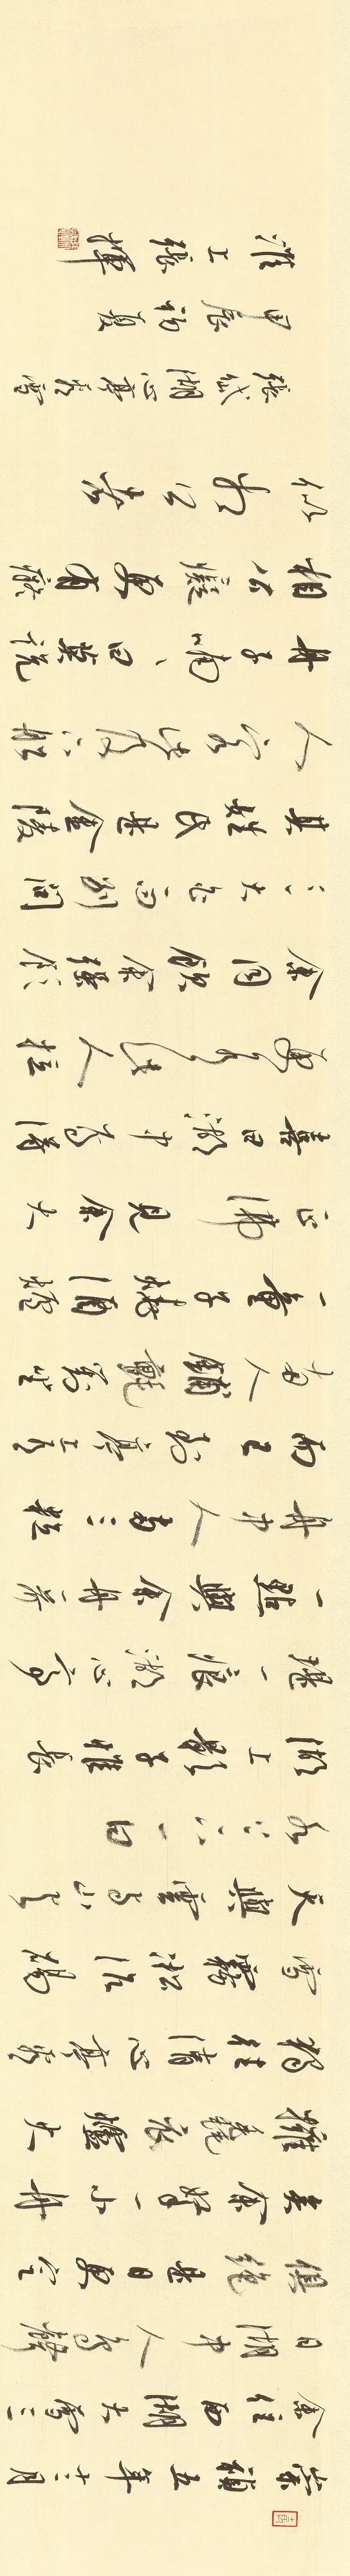 崇禎五年十二月
余住西湖大雪三
日湖中人鳥聲
俱絕是日更定
矣余拏一小舟
擁毳衣爐火
獨往湖心亭看
雪霧凇沆碭
天與雲與山與
水上下一白
湖上影子惟長
堤一痕湖心亭
一點與余舟一芥
舟中人兩三粒
而已到亭上有
兩人鋪氈對坐
一童子燒酒爐
正沸見余大
喜曰湖中焉得
更有此人拉
余同飲余強飲
三大白而別問
其姓氏是金陵
人客此及下船
舟子喃喃曰莫說
相公癡更有癡
似相公者
張岱湖心亭看雪
甲辰初夏
淮上張揮